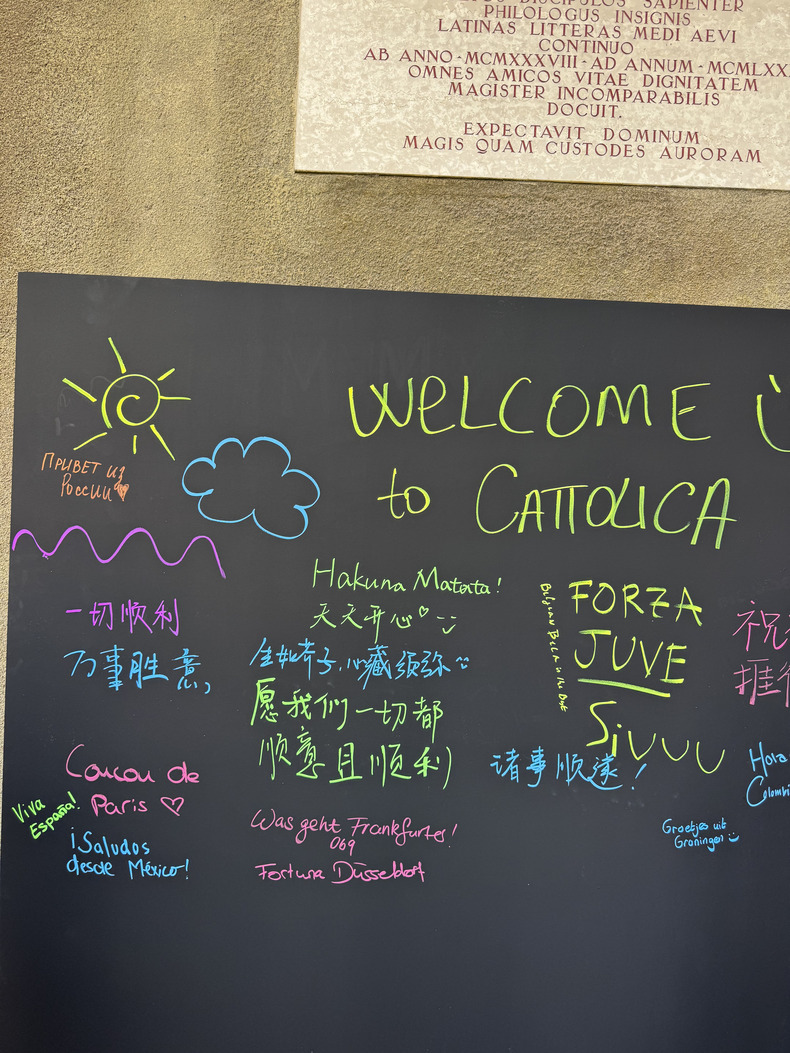 DISCIPULOS SAPIENTER
PHILOLOGUS INSIGNIS
LATINAS LITTERAS MEDI AEVI
CONTINUO
AB ANNO · MCMXXXVIII · AD ANNUM ·
OMNES AMICOS VITAE DIGNITATEM
MAGISTER INCOMPARABILIS
DOCUIT.
EXPECTAVIT DOMINUM
MAGIS QUAM CUSTODES AURORAM
WELCOME
to CATTOLICA
ПРИВЕТ ИЗ
РОССИИ
Hakuna Matata!
天天开心
一切顺利
万事胜意,
生如芥子,心藏须弥
愿我们一切都
顺意且顺利
FORZA
JUVE
Siuuu
诸事顺遂!
祝
Coucou de
Paris
Viva
España!
¡Saludos
desde México!
Was geht Frankfurter!
069
Fortuna Düsseldorf
Hola
Groetjes uit
Groningen